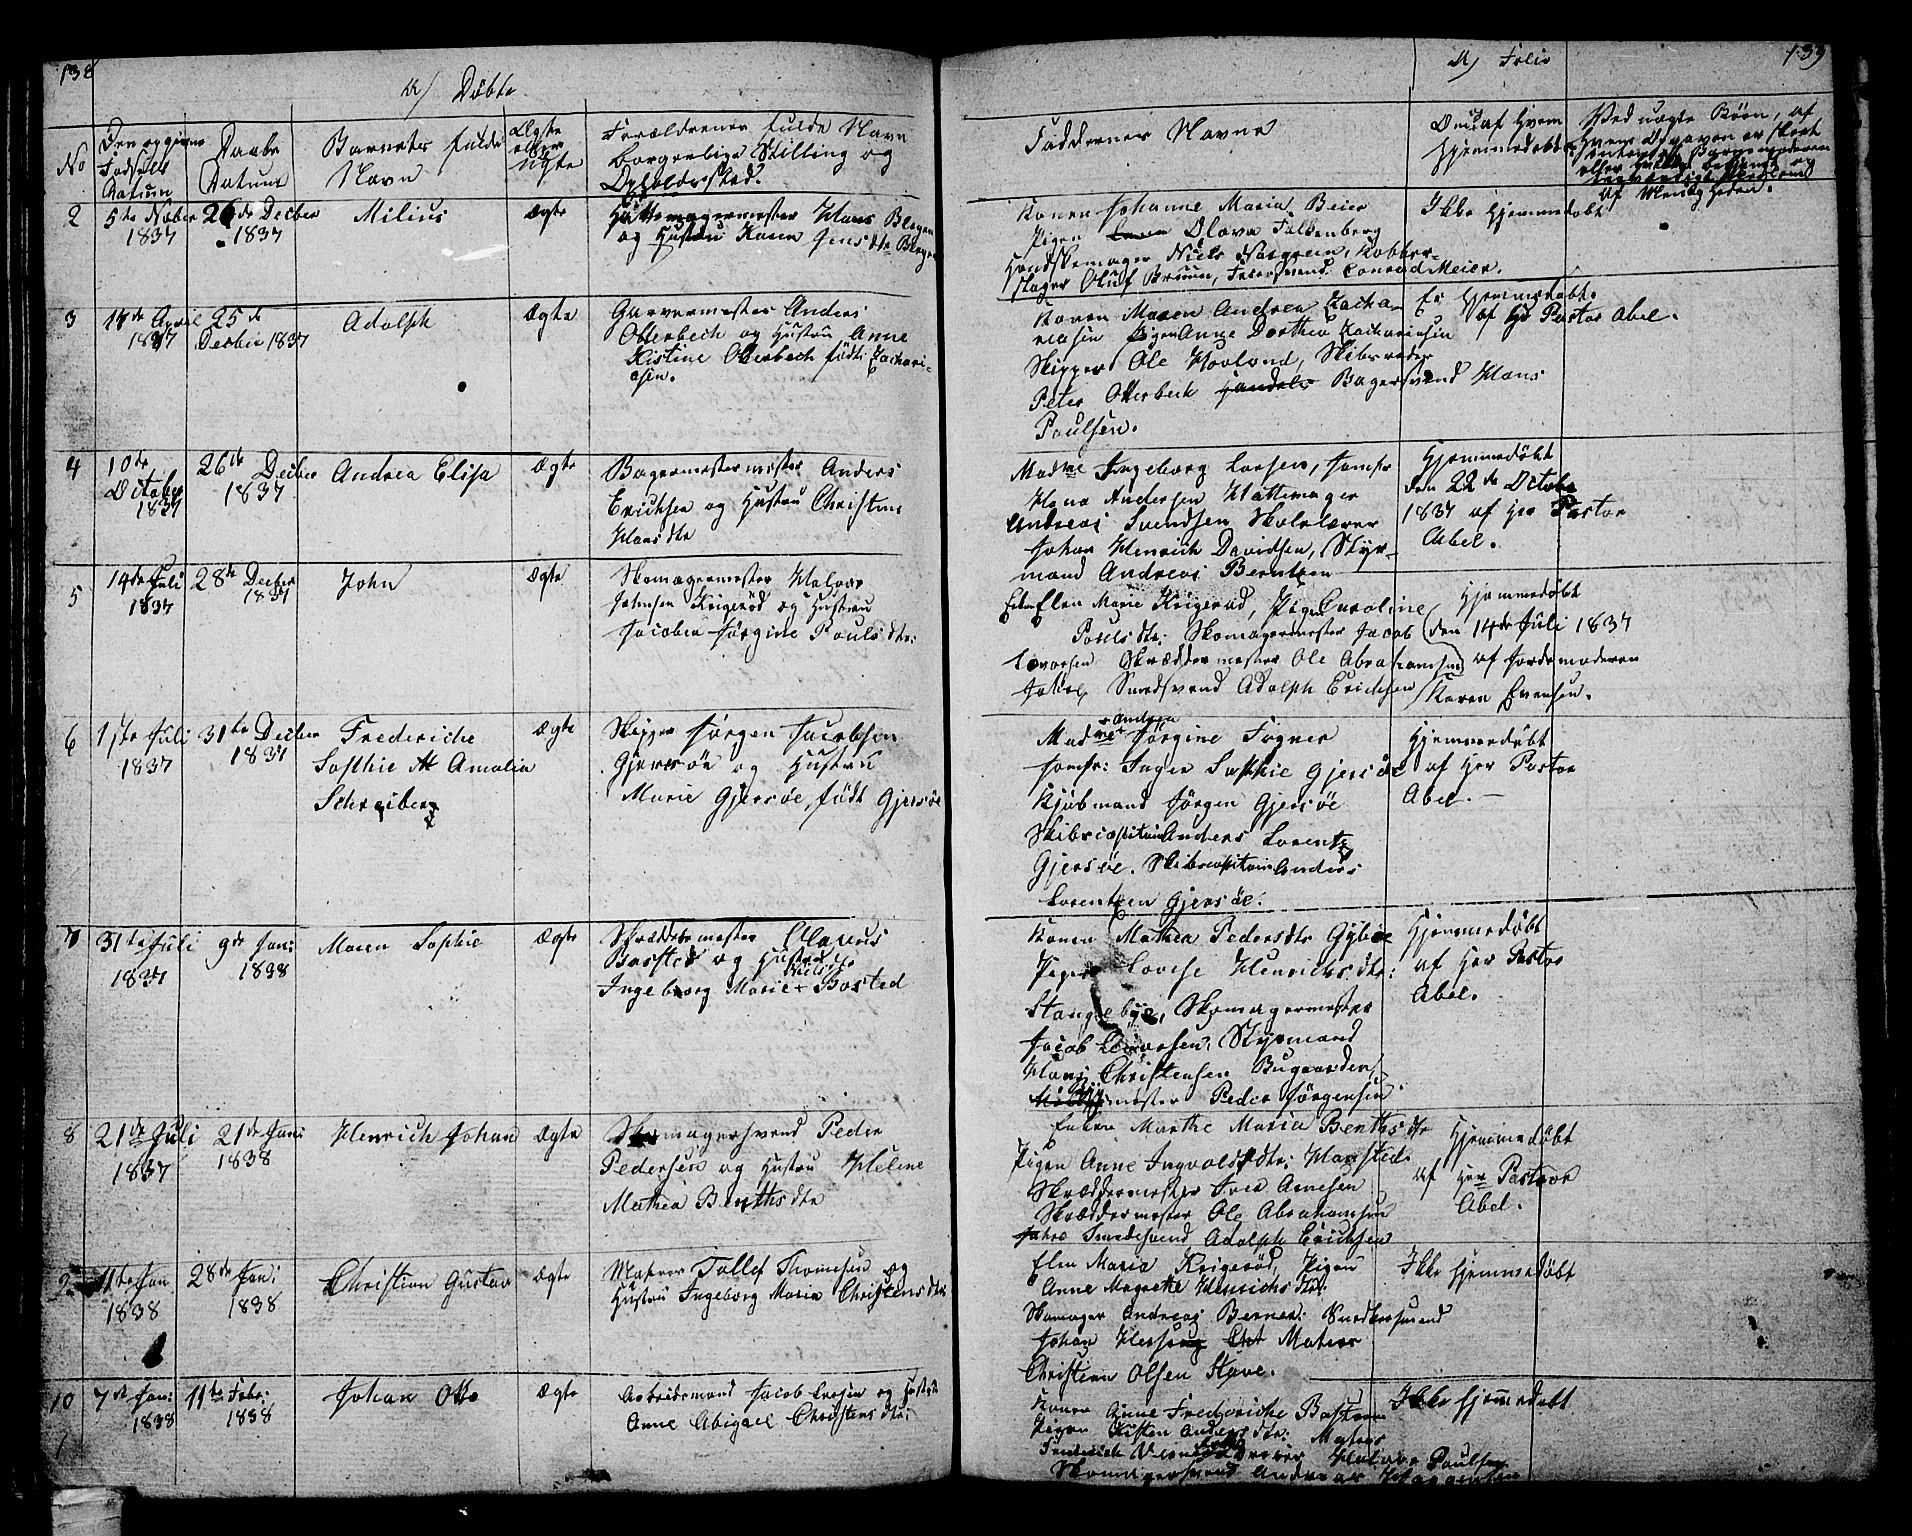 138
a) Döbte
No
Den opgivne Födsels Datum
Daabs Datum
Barnets fulde Navn
Ægte eller Uægte
Forældrenes fulde Navn
Borgerlige Stilling og
Opholdssted.
2
5te Nober 1837
26de Decber 1837
Milius
Ægte
Hattemagermester Hans
og Hustru Karen Jensdtr
3
April 1837
25de Decber 1837
Adolph
Ægte
Garvermester Anders
Otterbech og Hustru Anne
Kistine Otterbech födt Zachari-
asen.
4
10de October 1837
26de Decber 1837
Andrea Elisa
Ægte
Bagermester Anders
Erichsen og Hustru Christine
Hansdtr
5
14de Juli 1837
28de Decber 1837
John
Ægte
Skomagermester Halvor
Johnsen Krigeröd og Hustru
Jacobea Jörgine Poulsdtr:
6
17de Juli 1837
31te Decber 1837
Frederiche
Sophie Amalia
Schreiberg
Ægte
Skipper Jörgen Jacobsen
Gjersöe og Hustru
Marie Gjersöe, födt Gjersöe
7
31te Juli 1837
9de Jan: 1838
Maren Sophie
Ægte
Skræddermester
Basted og Hustru
Ingeborg Marie Nielsdtr Basted
8
21de Juli 1837
21de Jan: 1838
Henrich Johan
Ægte
Skomagersvend Peder
Pedersen og Hustru Helene
Mathea Benthsdtr
9
11te Jan 1838
28de Jan: 1838
Christian Gustav
Ægte
Matros Tollef Thomesen og
Hustru Ingeborg Maria Christensdtr:
10
7de Jan: 1838
11te Febr: 1838
Johan Otto
Ægte
Arbeidsmand Jacob Larsen og Hustru
Anne Abigael Christensdtr:
a) Folio
139
Faddernes Navne
Om, og af Hvem
Hjemmedöbt
Ved uægte Börn, af
Konen Johanne Maria Beier
Pigen Olava Falkenberg
Handskemager Niels Norgreen, Kobber-
slager Oluf Bruun, Conrad Meier.
Ikke Hjemmedöbt
Konen Maren Andrea Zacha-
riasen Pigen Anne Dorthea Zachariasen
Skipper Ole Hovland, Skibsreder
Peter Otterbech Bagersvend Hans
Paulsen.
Er Hjemmedöbt
af Hr Pastor Abel.
Madme Ingeborg Larsen, Jomfr
Hana Andersen Hattemager
Andreas Svendsen Skolelærer
Johan Henrich Davidsen, Styr-
mand Andreas Berntzen
Hjemmedöbt
den 22de Octobr
1837 af Hr Pastor
Abel.
Elen Marie Krigeröd, Pigen Caroline
Poulsdtr: Skomagermester Jacob
Skræddermester Ole Abrahamsen
Smedsvend Adolph Erichsen
Hjemmedöbt
den 14de Juli 1837
af Jordemoderen
Karen Evensen.
Madme Andrea Jörgine Fogner
Jomfr: Inger Sophie Gjersöe
Kjöbmand Jörgen Gjersöe
Skibscapitain Anders Lorentz
Gjersöe. Skibscapitain Anders
Lorentzen Gjersöe.
Hjemmedöbt
af Her Pastor
Abel. —
Konen Mathea Pedersdtr
Pigen Lovise Henrichsdtr:
Stangebye, Skomagermester
Jacob Styrmand
Hans Christensen Bugaarden,
mester Peder Jörgensen
Hjemmedöbt
af Her Pastor
Abel.
Enken Marthe Maria Benthsdtr
Pigen Anne Ingvoldsdtr: Hansted
Skræddermester Arnesen
Skræddermester Ole Abrahamsen
Smedesvend Adolph Erichsen
Hjemmedöbt
af Her Pastor
Abel.
Elen Maria Krigeröd, Pigen
Anne Magrethe Henrichsdtr:
Skomager Andreas Berner:
Johan Matros
Christian Olsen
Ikke Hjemmedöbt
Konen Anne Frederiche
Pigen Kisten Andersdtr: Matros
Frederich Halvor Paulsen
Skomagersvend Andreas
Ikke Hjemmedöbt